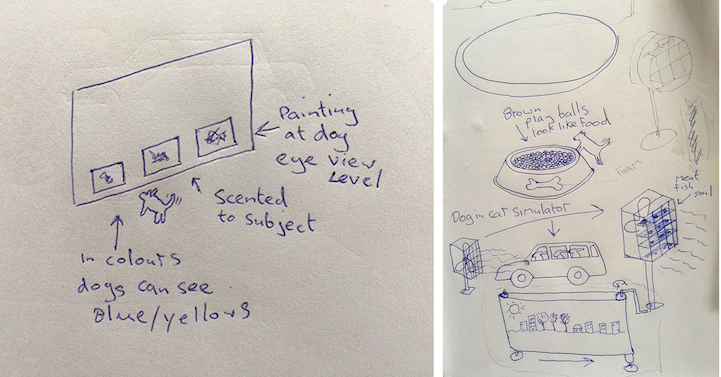 Painting
at dog
eye view
level
Scented
to subject
In colours
dogs can see
Blue/yellows
Brown
play balls
look like food
Foam
meat
fish
soil
Dog in car simulator